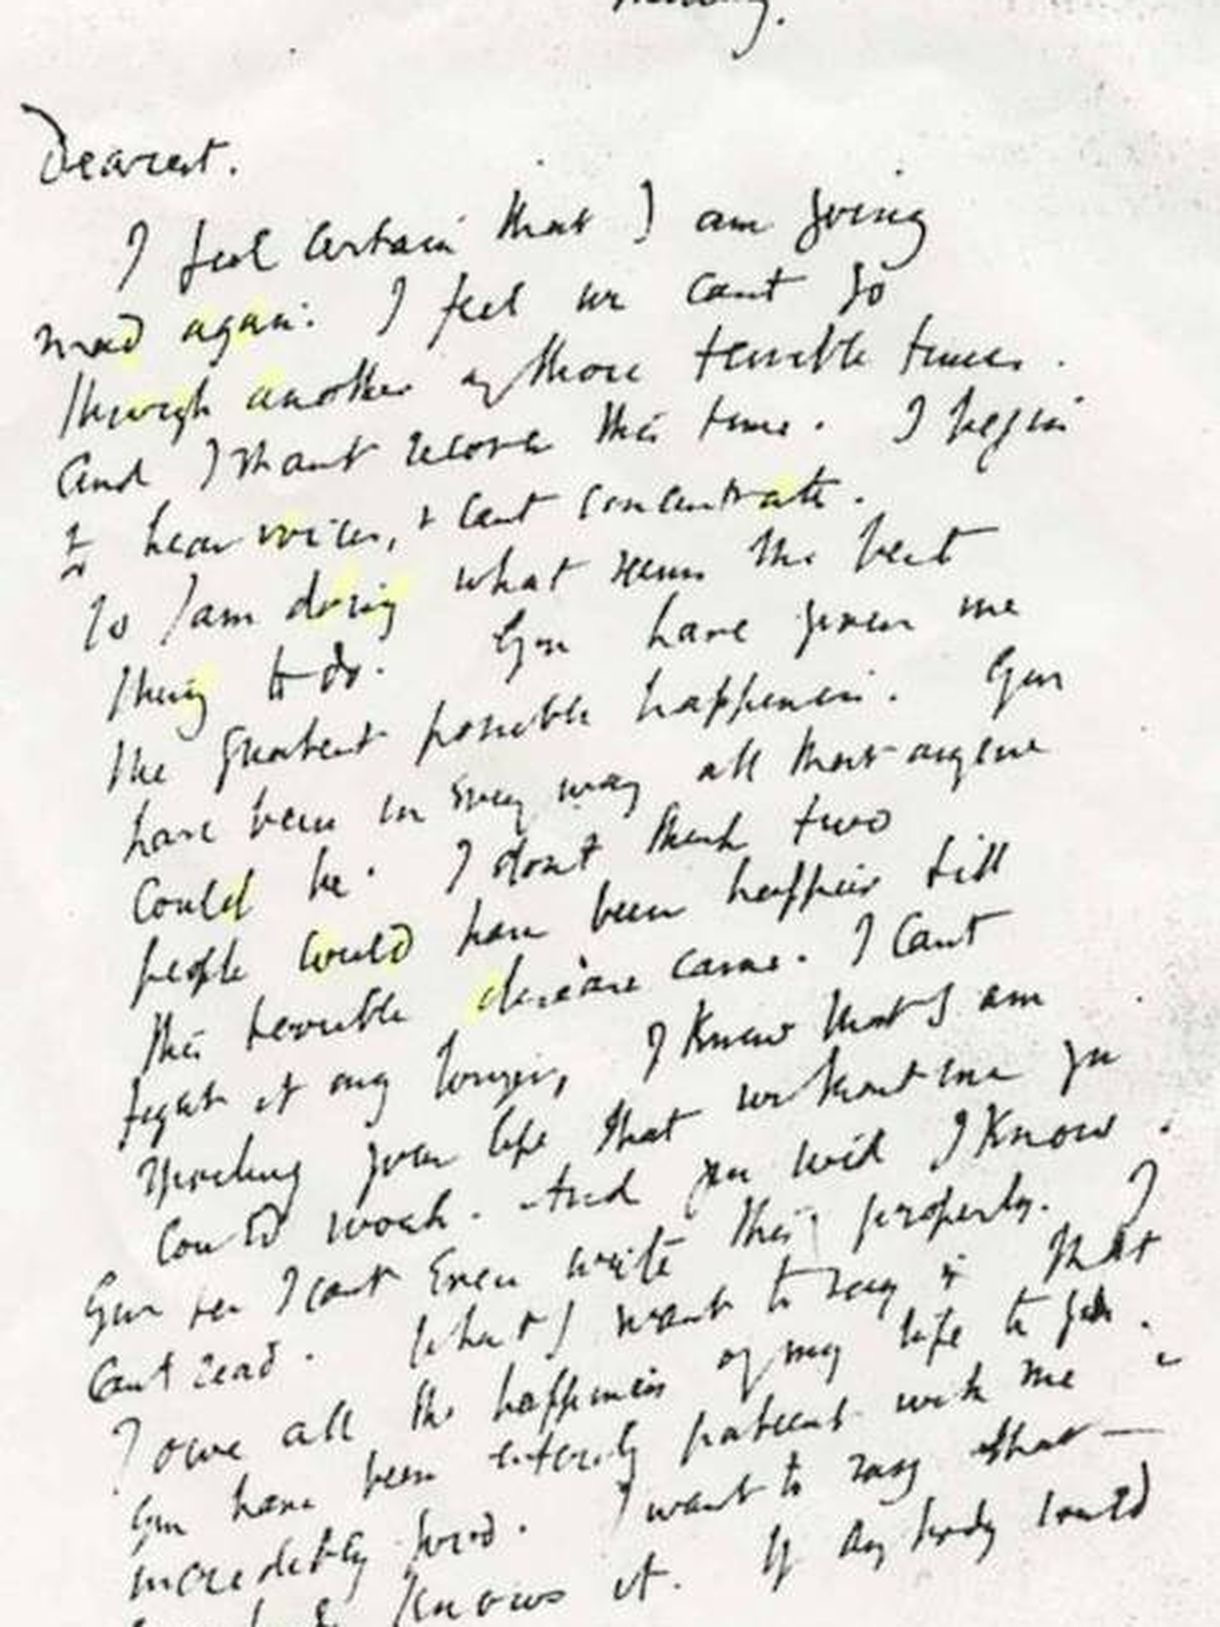 Dearest.
I feel certain that I am going
mad again: I feel we cant go
through another of those terrible times.
And I shant recover this time. I begin
to hear voices, & cant concentrate.
So I am doing what seems the best
thing to do. You have given me
the greatest possible happiness. You
have been in every way all that anyone
could be. I dont think two
people could have been happier till
this terrible disease came. I cant
fight it any longer, I know that I am
spoiling your life that without me you
could work. And you will I know.
You see I cant even write this properly. I
cant read. What I want to say is that
I owe all the happiness of my life to you.
You have been entirely patient with me &
incredibly good. I want to say that —
knows it. If anybody could